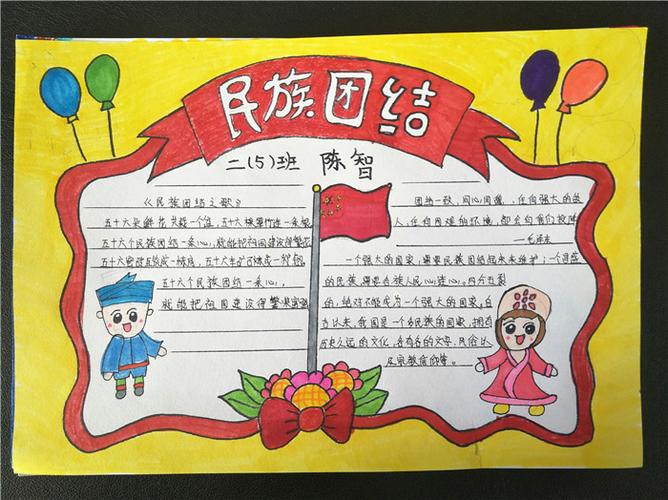 民族团结
二(5)班 陈智
《民族团结之歌》
五十六朵鲜花 共栽一个盆,五十六
五十六个民族团结一条心,就能把祖国建设得繁花
五十六
五十六个民族团结一条心,
就能把祖国建设得繁荣富强
团结一致,同心同德,任何强大的敌
人,任何困难的环境,都会向我们投降
—毛泽东
一个强大的国家,需要民族团结起来来维护;一个
的民族,需要各族人民心连心。四分五裂
的,绝对不能成为一个强大的国家,自
古以来,我国是一个多民族的国家,拥有
历史久远的文化,各有各的文字,风俗以
及宗教信仰等。